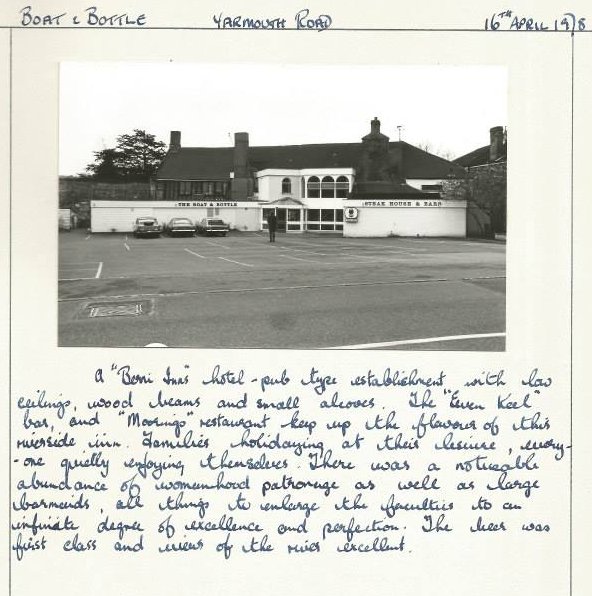 BOAT & BOTTLE YARMOUTH ROAD 16TH APRIL 1978
THE BOAT & BOTTLE STEAK HOUSE & BARS
A "Berni Inns" hotel-pub type establishment, with low
ceilings, wood beams and small alcoves. The "Even Keel"
bar, and "Moorings" restaurant keep up the flavour of this
riverside inn. Families holidaying at their leisure, every-
-one quietly enjoying themselves. There was a noticeable
abundance of womenhood patronage as well as large
barmaids, all things to enlarge the faculties to an
infinate degree of excellence and perfection. The beer was
first class and views of the river excellent.